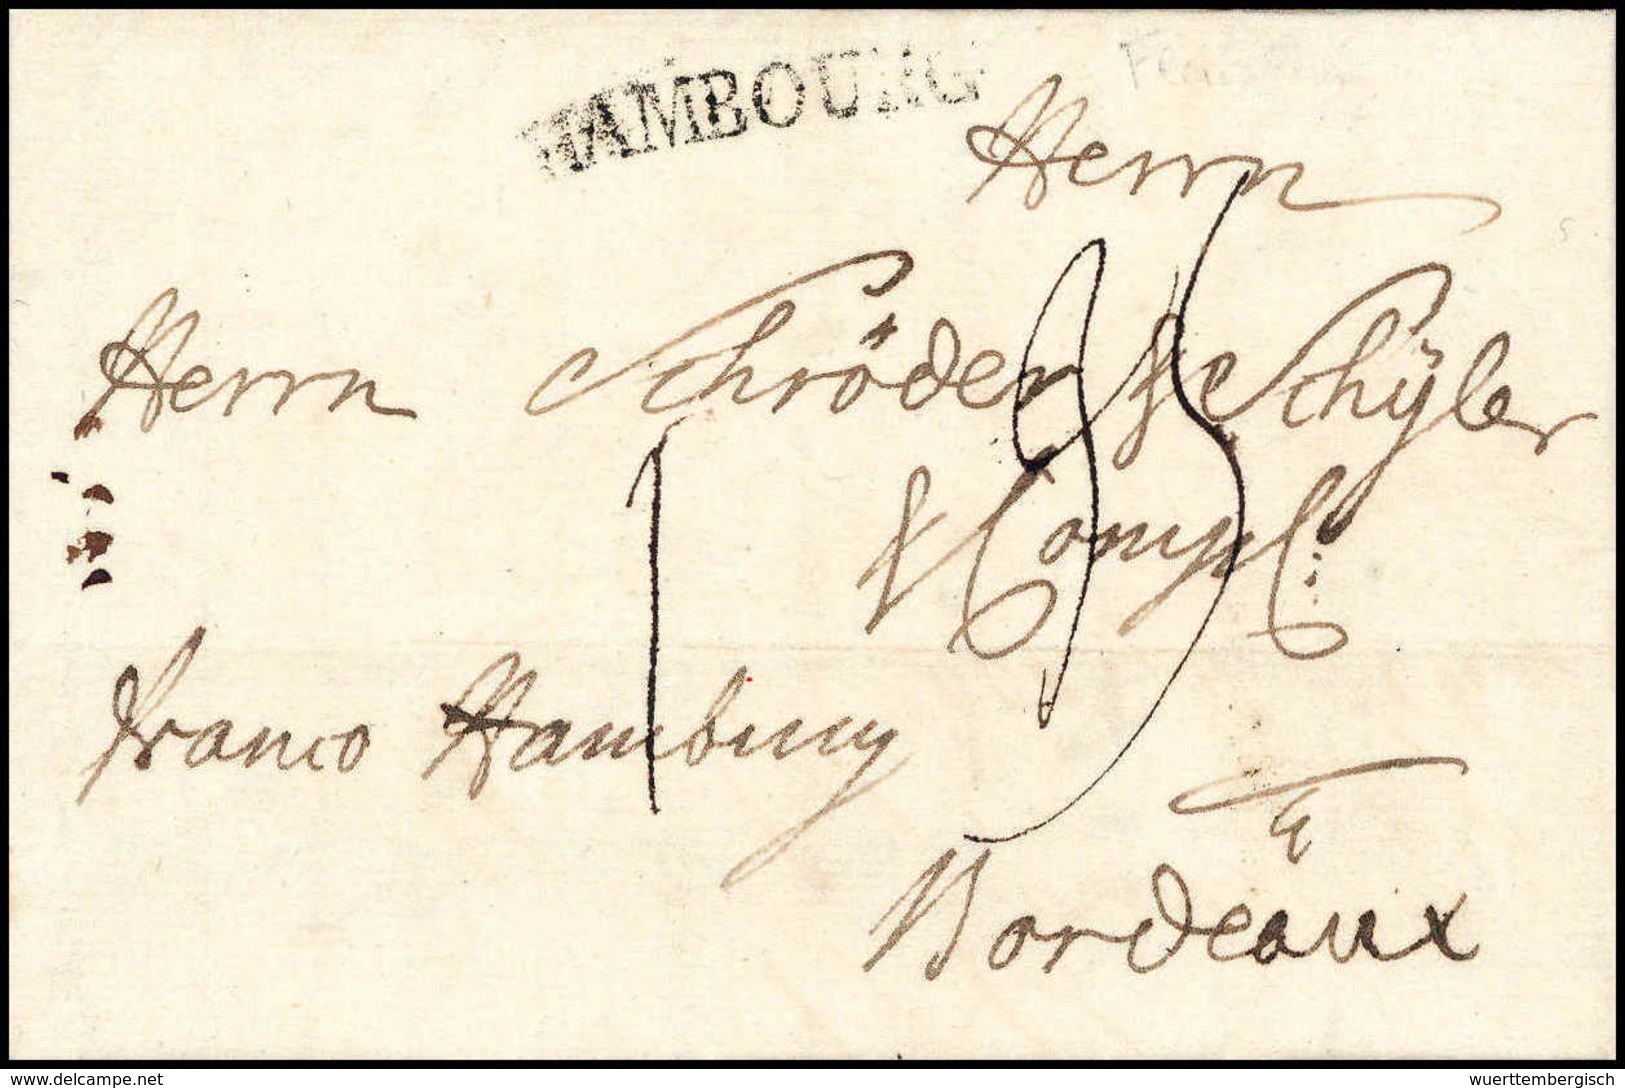 HAMBOURG
Herrn
Herrn Schröder & Schÿler
& Comp:
franco Hamburg
à
Bordeaux
delcampe.net
wuerttembergisch